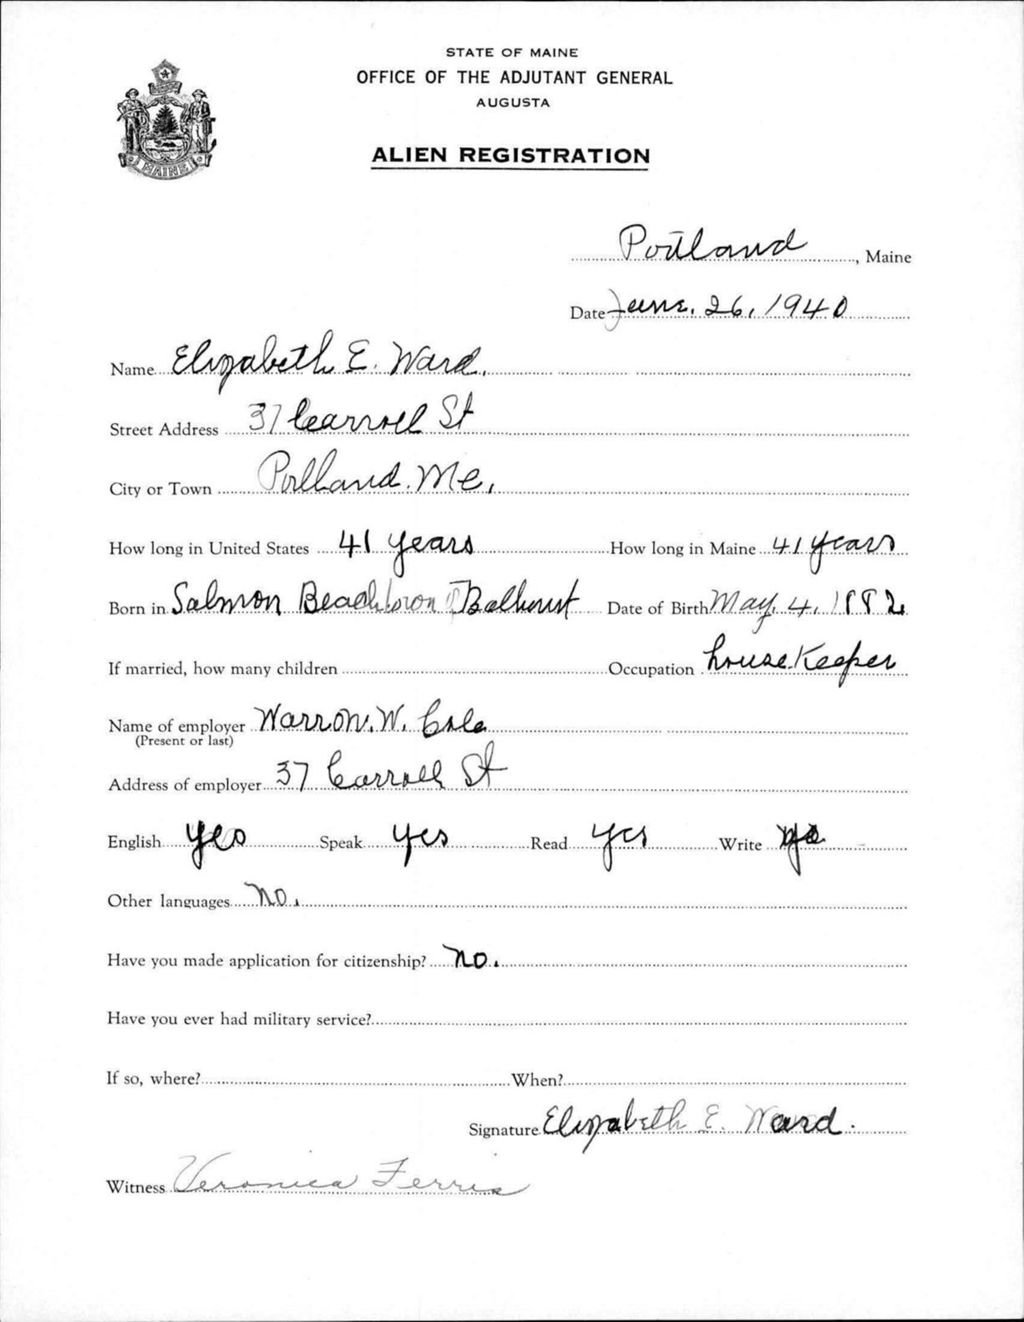 STATE OF MAINE
OFFICE OF THE ADJUTANT GENERAL
AUGUSTA
ALIEN REGISTRATION
MAINE
Portland, Maine
Date June. 26, 1940
Name Elizabeth E. Ward.
Street Address 37 Carroll St
City or Town Portland. Me,
How long in United States 41 years How long in Maine 41 years
Born in Salmon Beach town of Bathurst Date of Birth May. 4, 1882
If married, how many children Occupation house Keeper
Name of employer Warron. W. Cole
(Present or last)
Address of employer 37 Carroll St
English yes Speak yes Read yes Write yes
Other languages no.
Have you made application for citizenship? no.
Have you ever had military service?
If so, where? When?
Signature Elizabeth E. Ward.
Witness Veronica Ferris